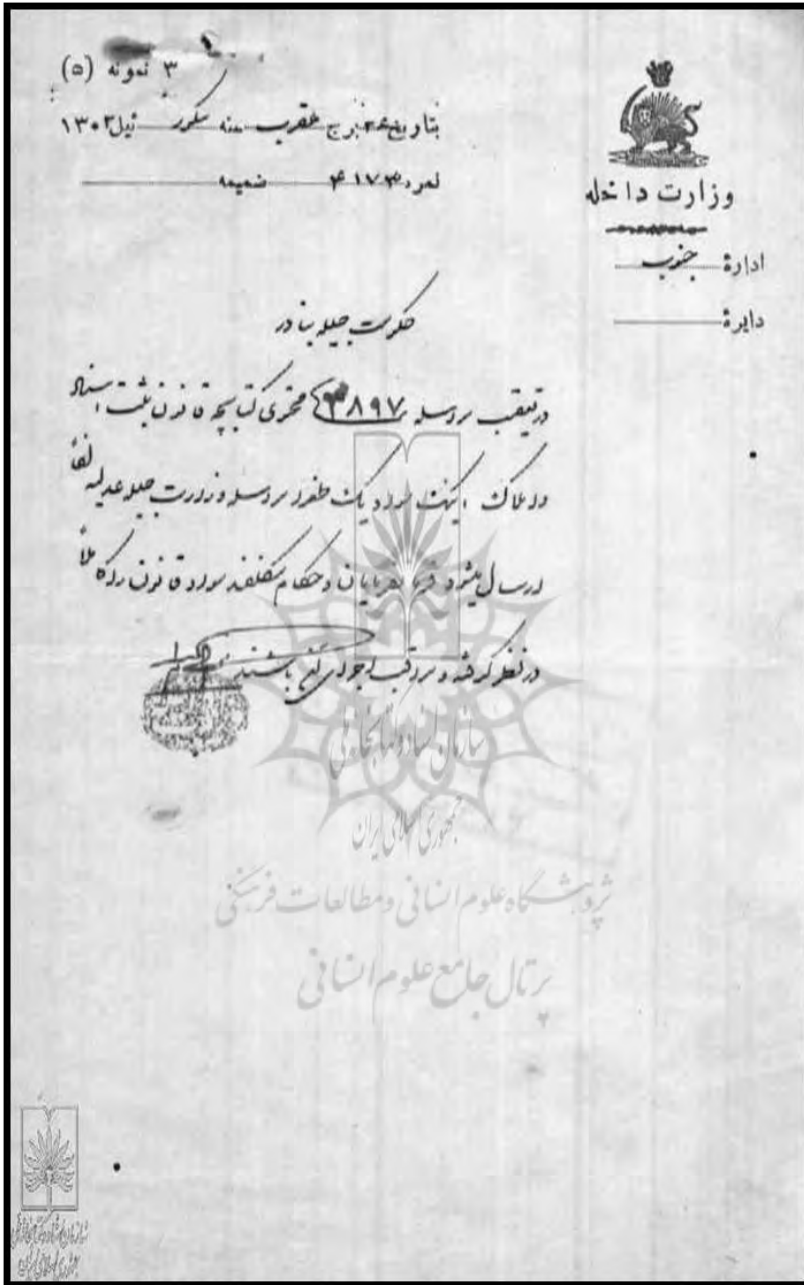 ۳ نمونه (۵)
بتاریخ ۲۶ برج عقرب سنه ئیل ۱۳۰۲
نمره ۴۱۷۳ ضمیمه
وزارت داخله
اداره جنوب
دایره
حکومت جلیله بنادر
در تعقیب مرسله ۳۸۹۷ محتوی کتابچه قانون ثبت اسناد
و املاک اینک سواد یک طغرا مرسله وزارت جلیله عدلیه لفاً
ارسال میشود فرمانفرمایان و حکام مکلفند مواد قانون را کاملاً
در نظر گرفته و مراقب اجرای آن باشند
سازمان اسناد و کتابخانه ملی
جمهوری اسلامی ایران
پژوهشگاه علوم انسانی و مطالعات فرهنگی
پرتال جامع علوم انسانی
سازمان اسناد و کتابخانه ملی
جمهوری اسلامی ایران